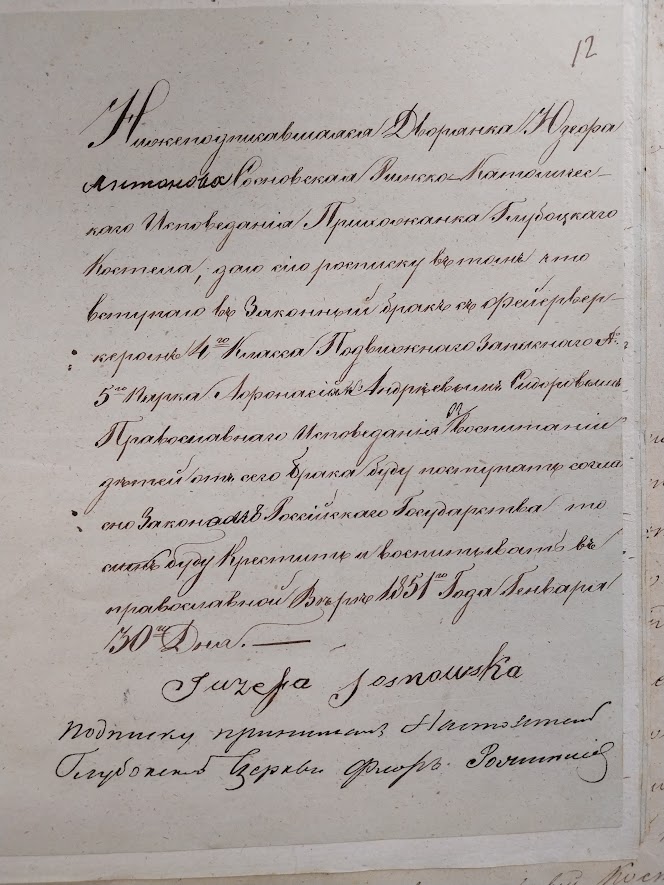 12
Нижеподписавшаяся Дворянка Юзефа
Антонова Сосновская Римско-Католичес-
каго Исповеданія Прихожанка Глубоцкаго
Костела, даю сію росписку въ томъ что
вступаю въ Законный бракъ съ фейервер-
керомъ 4го Класса Подвижнаго Запаснаго №
5го Парка Афонасіемъ Андреевымъ Сидоровымъ
Православнаго Исповеданія Воспитаніи
дѣтей отъ сего брака буду поступать согла
сно Законамъ Россійскаго Государства то
буду Крестить и воспитывать въ
православной Вѣрѣ 1851го Года Генваря
30го Дня. —
Juzefa Sosnowska
Подписку принималъ Настоятель
Глубокской Церкви Флоръ